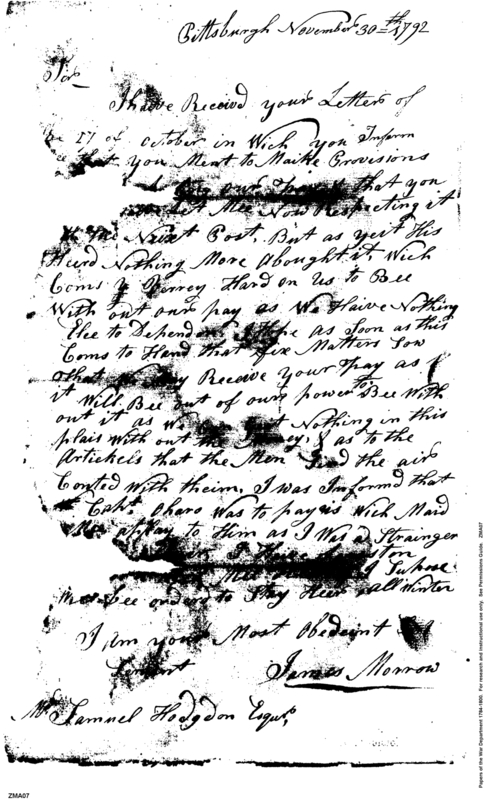 Pittsburgh November 30th 1792
Sir
I haive Received your Letters of
17 of october in Wich you Inform
that you Ment to Maike Provisions
our pay that you
Let Mee Now Respecting it
Next Post, But as yeit His
Heard Nothing More abought it, Wich
Coms Verrey Hard on Us to Bee
With out our pay as We Haive Nothing
Elce to Depend on I Hope as Soon as this
Coms to Hand that Matters Sow
that May Receive your pay as
it Will Bee out of ours power to Bee With
out it as We Nothing in this
plais With out the & as to the
Artickels that the Men the air
Conted With theim, I was Imformd that
Capt. oharo Was to pay Wich Maid
apply to Him as I Was a Strainger
Supose
Bee orderd to Stay Heir all Winter
I am your Most Obedeint
James Morrow
Mr. Samuel Hodgdon Esqr.
Papers of the War Department 1784-1800. For research and instructional use only. See Permissions Guide. ZMA07
ZMA07